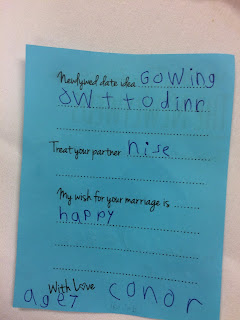 Newlywed date idea Gowing
owttodinr
Treat your partner nise
My wish for your marriage is
happy
With Love conor
age7